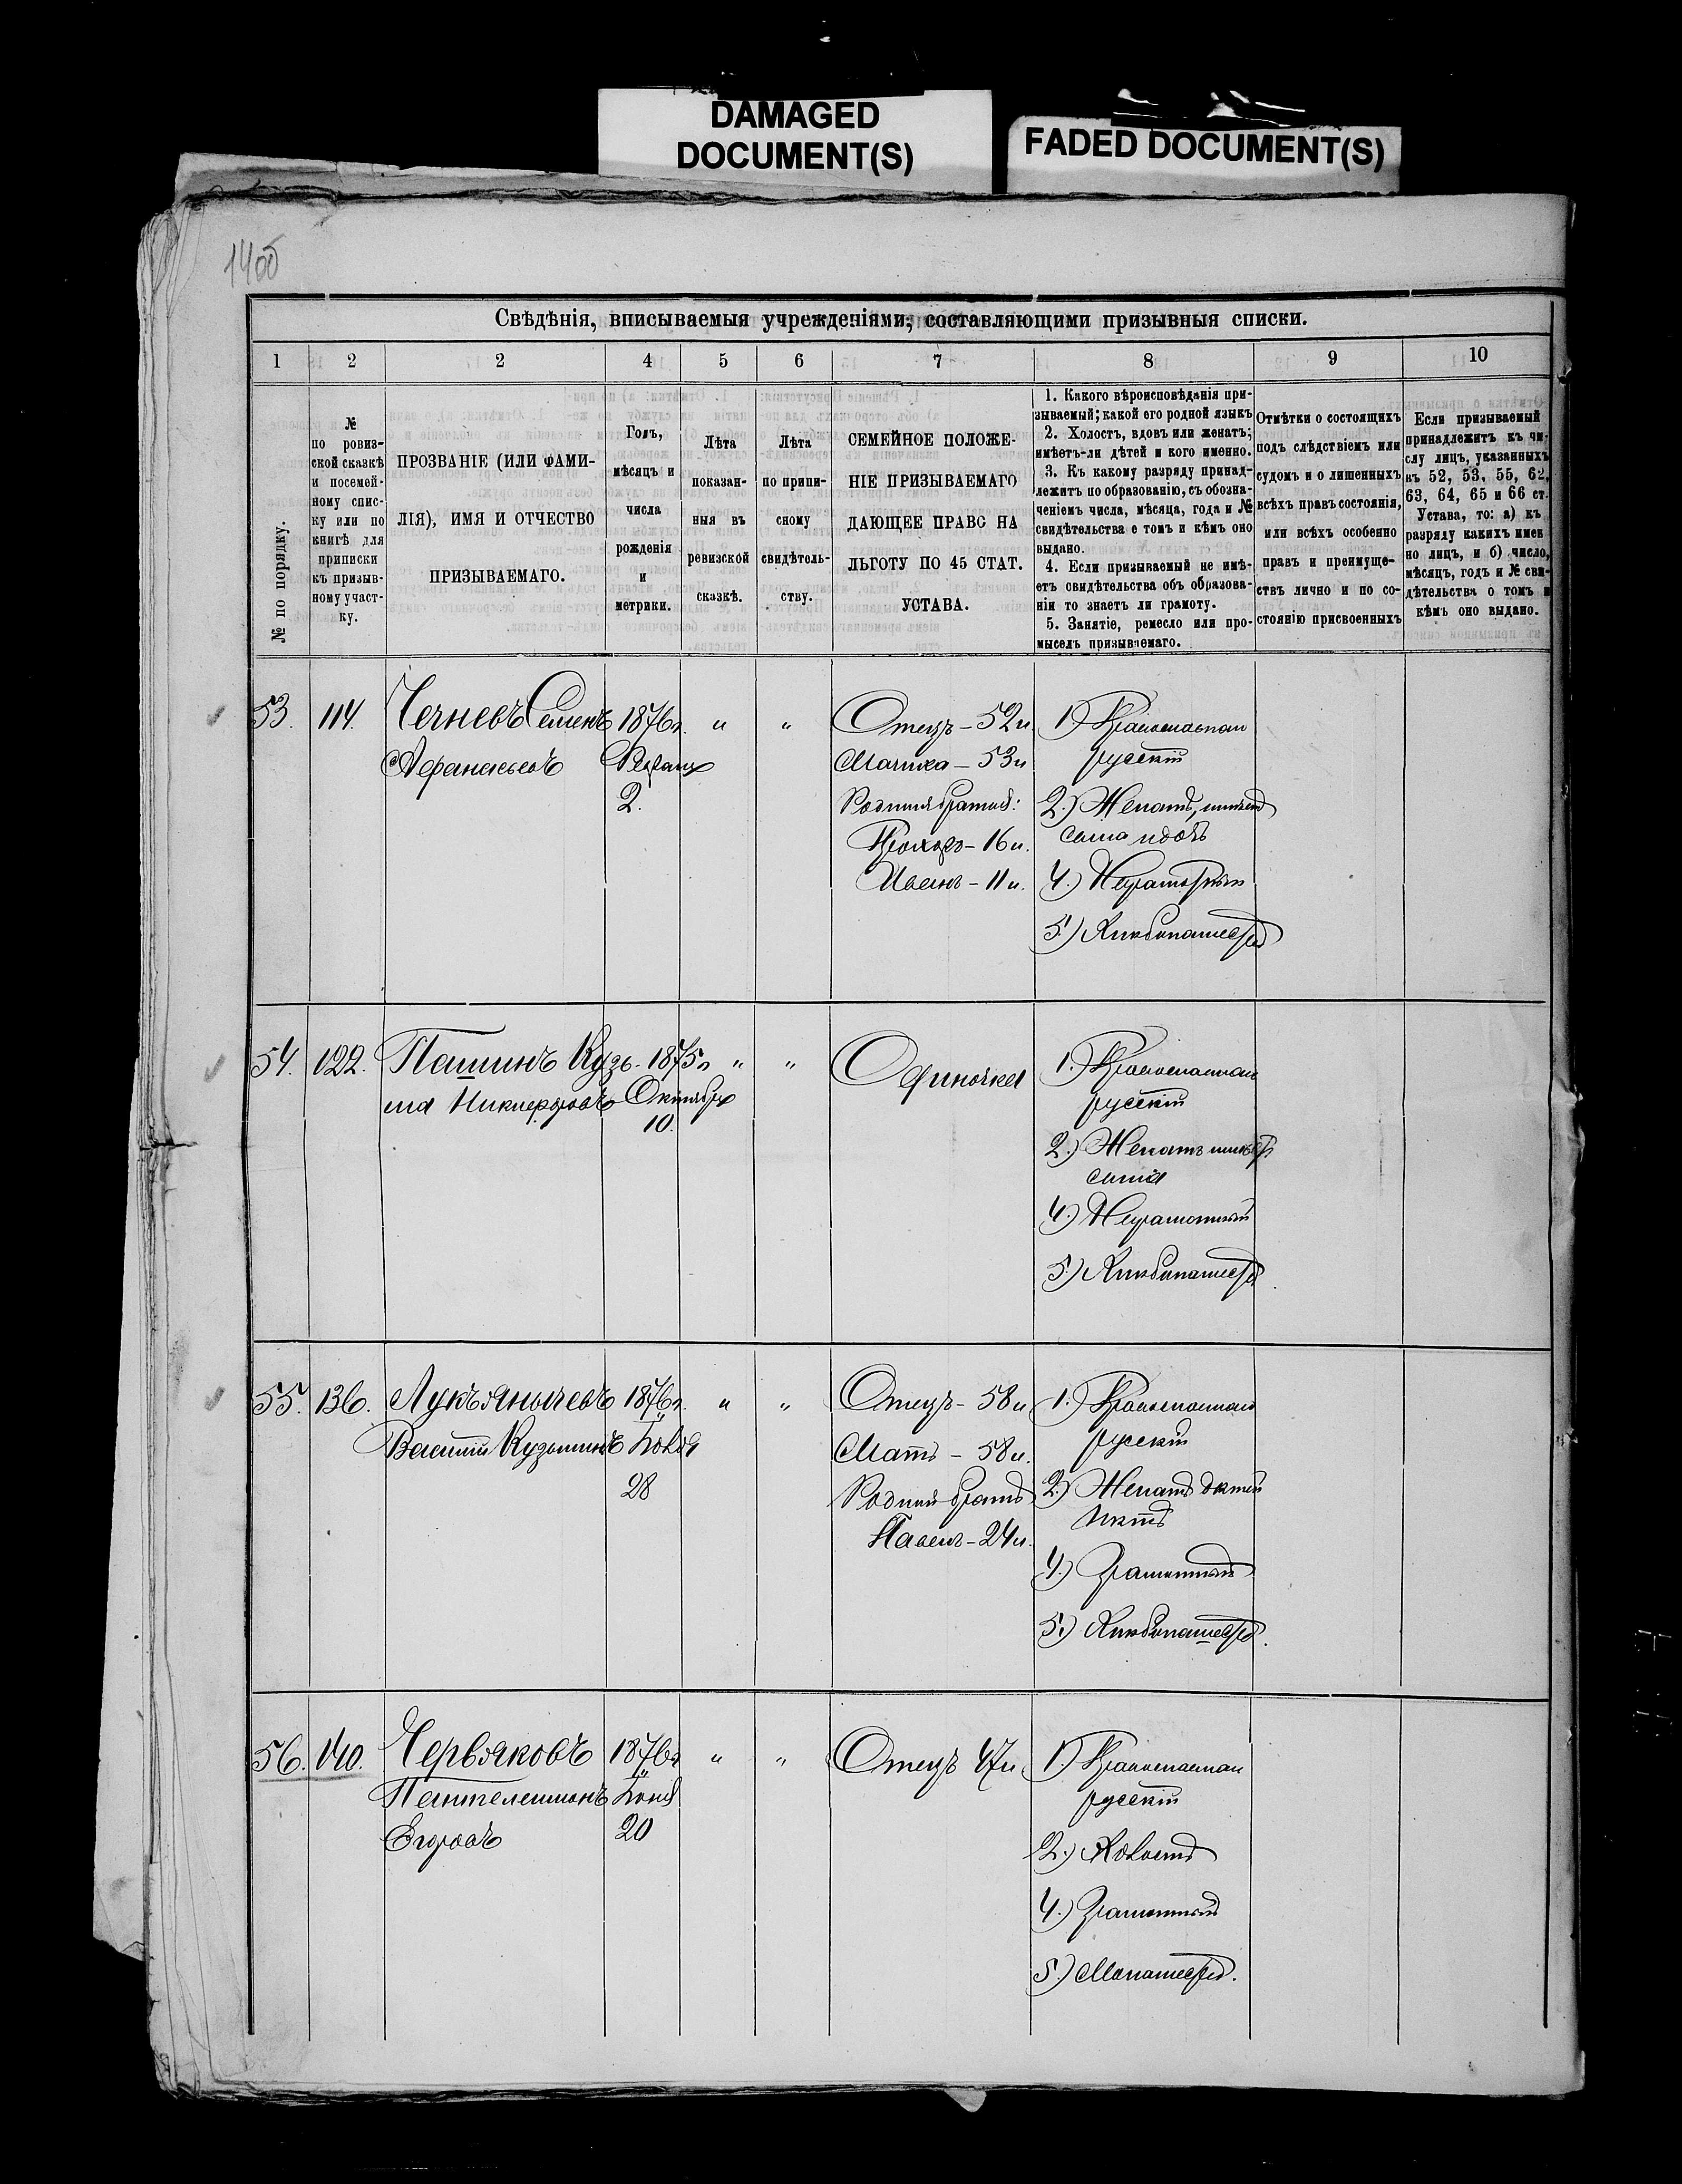 DAMAGED
DOCUMENT(S)
FADED DOCUMENT(S)
Свѣдѣнія, вписываемыя учрежденіями, составляющими призывныя списки.
1 2 2 4 5 6 7 8 9 10
№ по порядку.
№
по ровиз-
ской сказкѣ
и посемей-
ному спис-
ку или по
книгѣ для
приписки
къ призыв-
ному участ-
ку.
ПРОЗВАНІЕ (ИЛИ ФАМИ-
ЛІЯ), ИМЯ И ОТЧЕСТВО
ПРИЗЫВАЕМАГО.
Годъ,
мѣсяцъ и
числа
рожденія
и
метрики.
Лѣта
показан-
ныя въ
ревизской
сказкѣ.
Лѣта
по припи-
сному
свидѣтель-
ству.
СЕМЕЙНОЕ ПОЛОЖЕ-
НІЕ ПРИЗЫВАЕМАГО
ДАЮЩЕЕ ПРАВО НА
ЛЬГОТУ ПО 45 СТАТ.
УСТАВА.
1. Какого вѣроисповѣданія при-
зываемый; какой его родной языкъ
2. Холостъ, вдовъ или женатъ;
имѣетъ-ли дѣтей и кого именно.
3. Къ какому разряду принад-
лежитъ по образованію, съ обозна-
ченіемъ числа, мѣсяца, года и №
свидѣтельства о томъ и кѣмъ оно
выдано.
4. Если призываемый не имѣ-
етъ свидѣтельства объ образова-
ніи то знаетъ ли грамоту.
5. Занятіе, ремесло или про-
мыселъ призываемаго.
Отмѣтки о состоящихъ
подъ слѣдствіемъ или
судомъ и о лишенныхъ
всѣхъ правъ состоянія,
или всѣхъ особенно
правъ и преимуще-
ствъ лично и по со-
стоянію присвоенныхъ
Если призываемый
принадлежитъ къ чи-
слу лицъ, указанныхъ
въ 52, 53, 55, 62,
63, 64, 65 и 66 ст.
Устава, то: а) къ
разряду какихъ имен
но лицъ, и б) число,
мѣсяцъ, годъ и № сви-
дѣтельства о томъ и
кѣмъ оно выдано.
53. 114. Чечневъ Семенъ 1876г. " " Отецъ - 52л. 1.) Православнаго
Афанасьевъ Февраля Мачиха - 53л. русскій
2. Родныя братья: 2.) Женатъ, имѣетъ
Прохоръ - 16л. сына и дочь
Иванъ - 11л. 4.) Неграмотный
5.) Хлѣбопашествъ
54. 122. Пашинъ Кузь- 1875г. " " Одиночка 1.) Православнаго
ма Никифоровъ Октября русскій
10. 2.) Женатъ имѣетъ
сына
4.) Неграмотный
5.) Хлѣбопашествъ
55. 136. Лукъянычевъ 1876г. " " Отецъ - 58л. 1.) Православнаго
Василій Кузьминъ Іюля Мать - 58л. русскій
28 Родной братъ 2.) Женатъ дѣтей
Павелъ - 24л. нѣтъ
4.) Грамотный
5.) Хлѣбопашествъ.
56. 140. Червяковъ 1876г. " " Отецъ 47л. 1.) Православнаго
Пантелеимонъ Іюля русскій
Егоровъ 20 2.) Холостъ
4.) Грамотный
5.)